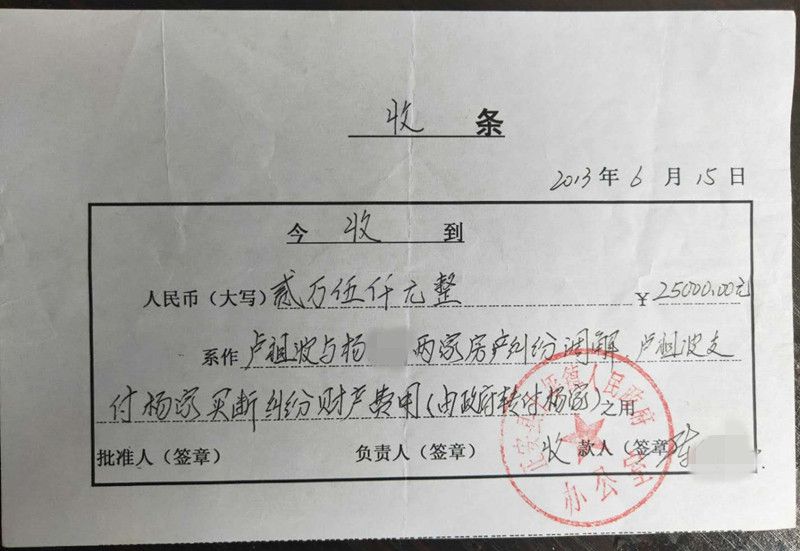 收 条
2013 年 6 月 15 日
今 收 到
人民币（大写）贰万伍仟元整 ￥25000.00元
系作 卢祖波与杨 两家房产纠纷调解 卢祖波支
付杨家买断纠纷财产费用(由政府转付杨家)之用
批准人（签章） 负责人（签章） 收 款人（签章） 陈
镇人民政府
办公室